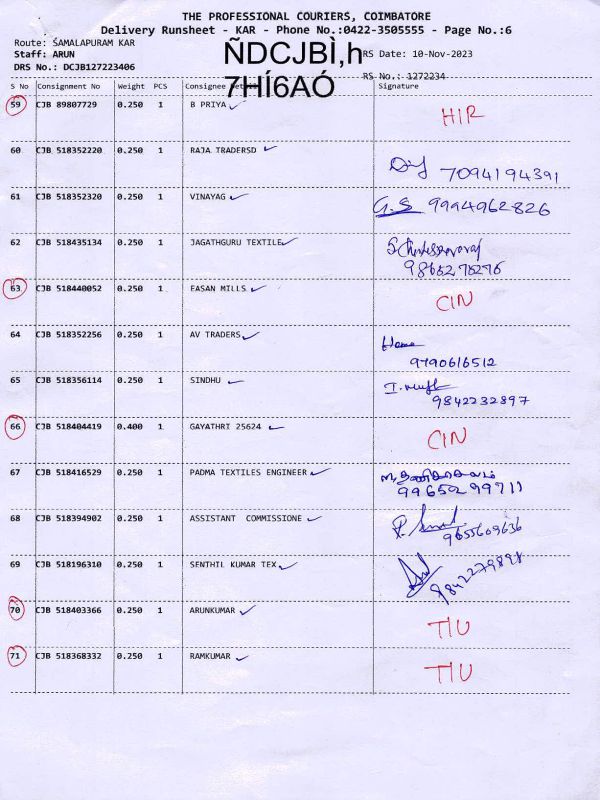 THE PROFESSIONAL COURIERS, COIMBATORE
Delivery Runsheet - KAR - Phone No.:0422-3505555 - Page No.:6
Route: SAMALAPURAM KAR
Staff: ARUN
DRS No.: DCJB127223406
ÑDCJBÌ,h
7HÍ6AÓ
RS Date: 10-Nov-2023
RS No.: 1272234
S No Consignment No Weight PCS Consignee Signature
59 CJB 89807729 0.250 1 B PRIYA HIR
60 CJB 518352220 0.250 1 RAJA TRADERSD 7094194391
61 CJB 518352320 0.250 1 VINAYAG G.S 9994962826
62 CJB 518435134 0.250 1 JAGATHGURU TEXTILE 9865278276
63 CJB 518440052 0.250 1 EASAN MILLS CIN
64 CJB 518352256 0.250 1 AV TRADERS 9790616512
65 CJB 518356114 0.250 1 SINDHU 9842232897
66 CJB 518404419 0.400 1 GAYATHRI 25624 CIN
67 CJB 518416529 0.250 1 PADMA TEXTILES ENGINEER
68 CJB 518394902 0.250 1 ASSISTANT COMMISSIONE 9655609636
69 CJB 518196310 0.250 1 SENTHIL KUMAR TEX 9842279898
70 CJB 518403366 0.250 1 ARUNKUMAR TIU
71 CJB 518368332 0.250 1 RAMKUMAR TIU